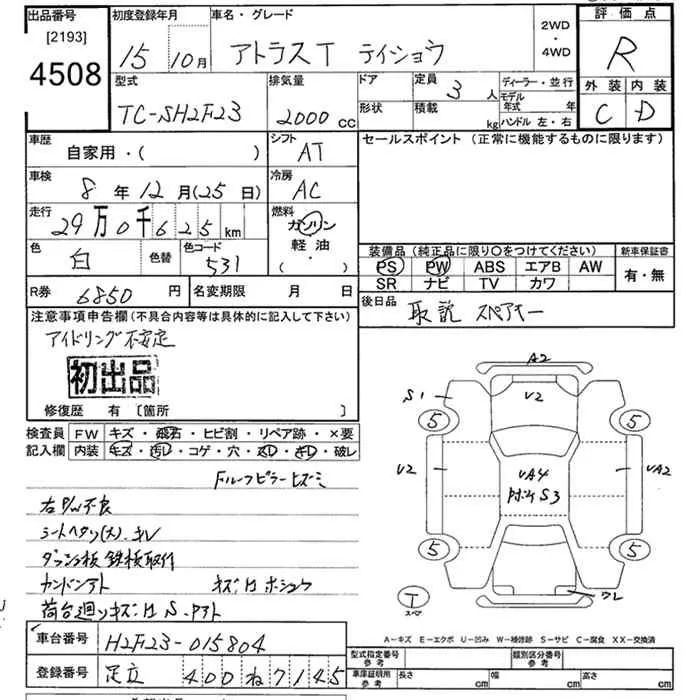 出品番号
[2193]
4508
初度登録年月
15 10月
車名・グレード
アトラスT テイショウ
2WD
・
4WD
評価点
R
外装 内装
C D
型式
TC-SH2F23
排気量
2000 cc
ドア
形状
定員
3 人
積載
kg
ディーラー・並行
モデル
年式 年
ハンドル 左・右
車歴
自家用・( )
シフト
AT
セールスポイント (正常に機能するものに限ります)
車検
8年12月(25日)
冷房
AC
走行
29万0千625km
燃料
ガソリン
軽油
( ・ )
色
白
色替
色コード
531
装備品 (純正品に限り〇をつけてください)
PS PW ABS エアB AW
SR ナビ TV カワ
新車保証書
有・無
R券 6850円
名変期限 月 日
後日品
取説 スペアキー
注意事項申告欄(不具合内容等は具体的に記入して下さい)
アイドリング不安定
初出品
修復歴 有 〔箇所 〕
検査員
記入欄
FW キズ・飛石・ヒビ割・リペア跡・×要
内装 キズ・汚レ・コゲ・穴・スレ・キレ・破レ
Fルーフピラーヒズミ
右P/W不良
シートヘタリ(大)、キレ
ダッシュ板 鉄板取付
カンバンアト キズロホシュウ
荷台廻リキズロS.アト
A2
V2
S1
5
5
V2
VA4
S3
VA2
5
5
T
スペア
ワレ
A-キズ E-エクボ U-凹み W-補修跡 S-サビ C-腐食 XX-交換済
車台番号
H2F23-015804
登録番号
足立 400 ね 7145
型式指定番号
参考
類別区分番号
参考
車庫証明用
参考
長さ cm
幅 cm
高さ cm